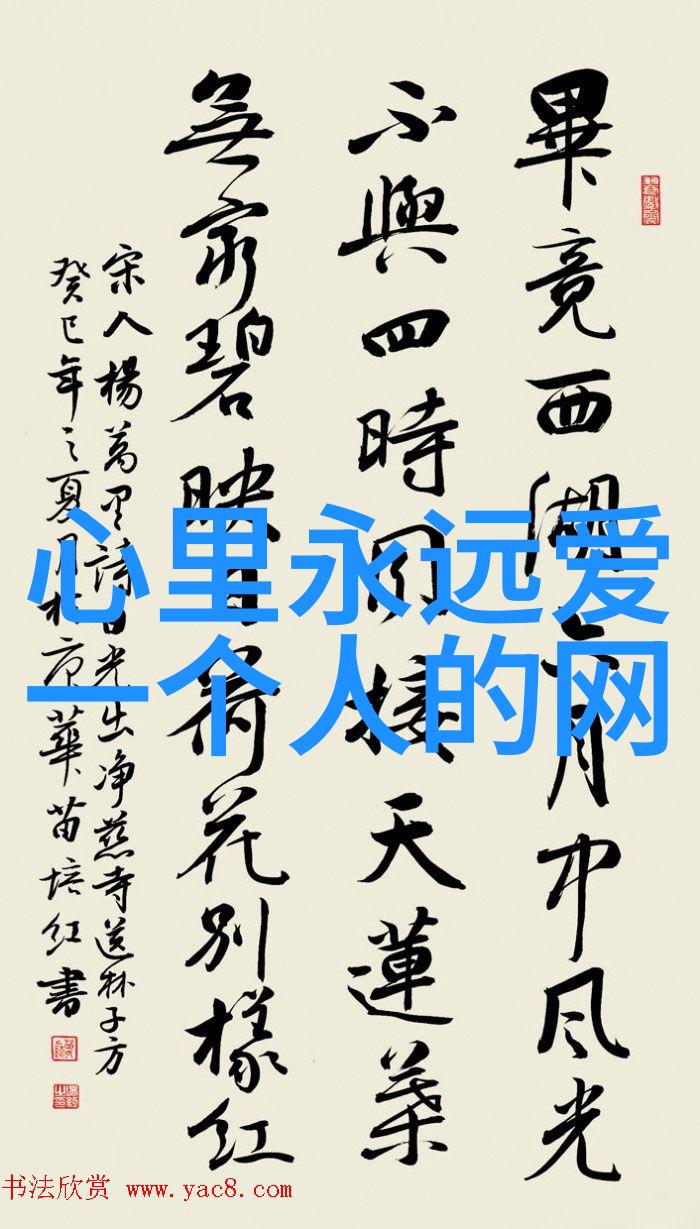 畢竟西湖六月中風光
不與四時同接天蓮葉
無窮碧映日荷花別樣紅
宋人楊萬里詩曉出净慈寺送林子方
癸巳年之夏月於京華苗培紅書
心里永远爱
一个人的网
书法欣赏 www.yac8.com